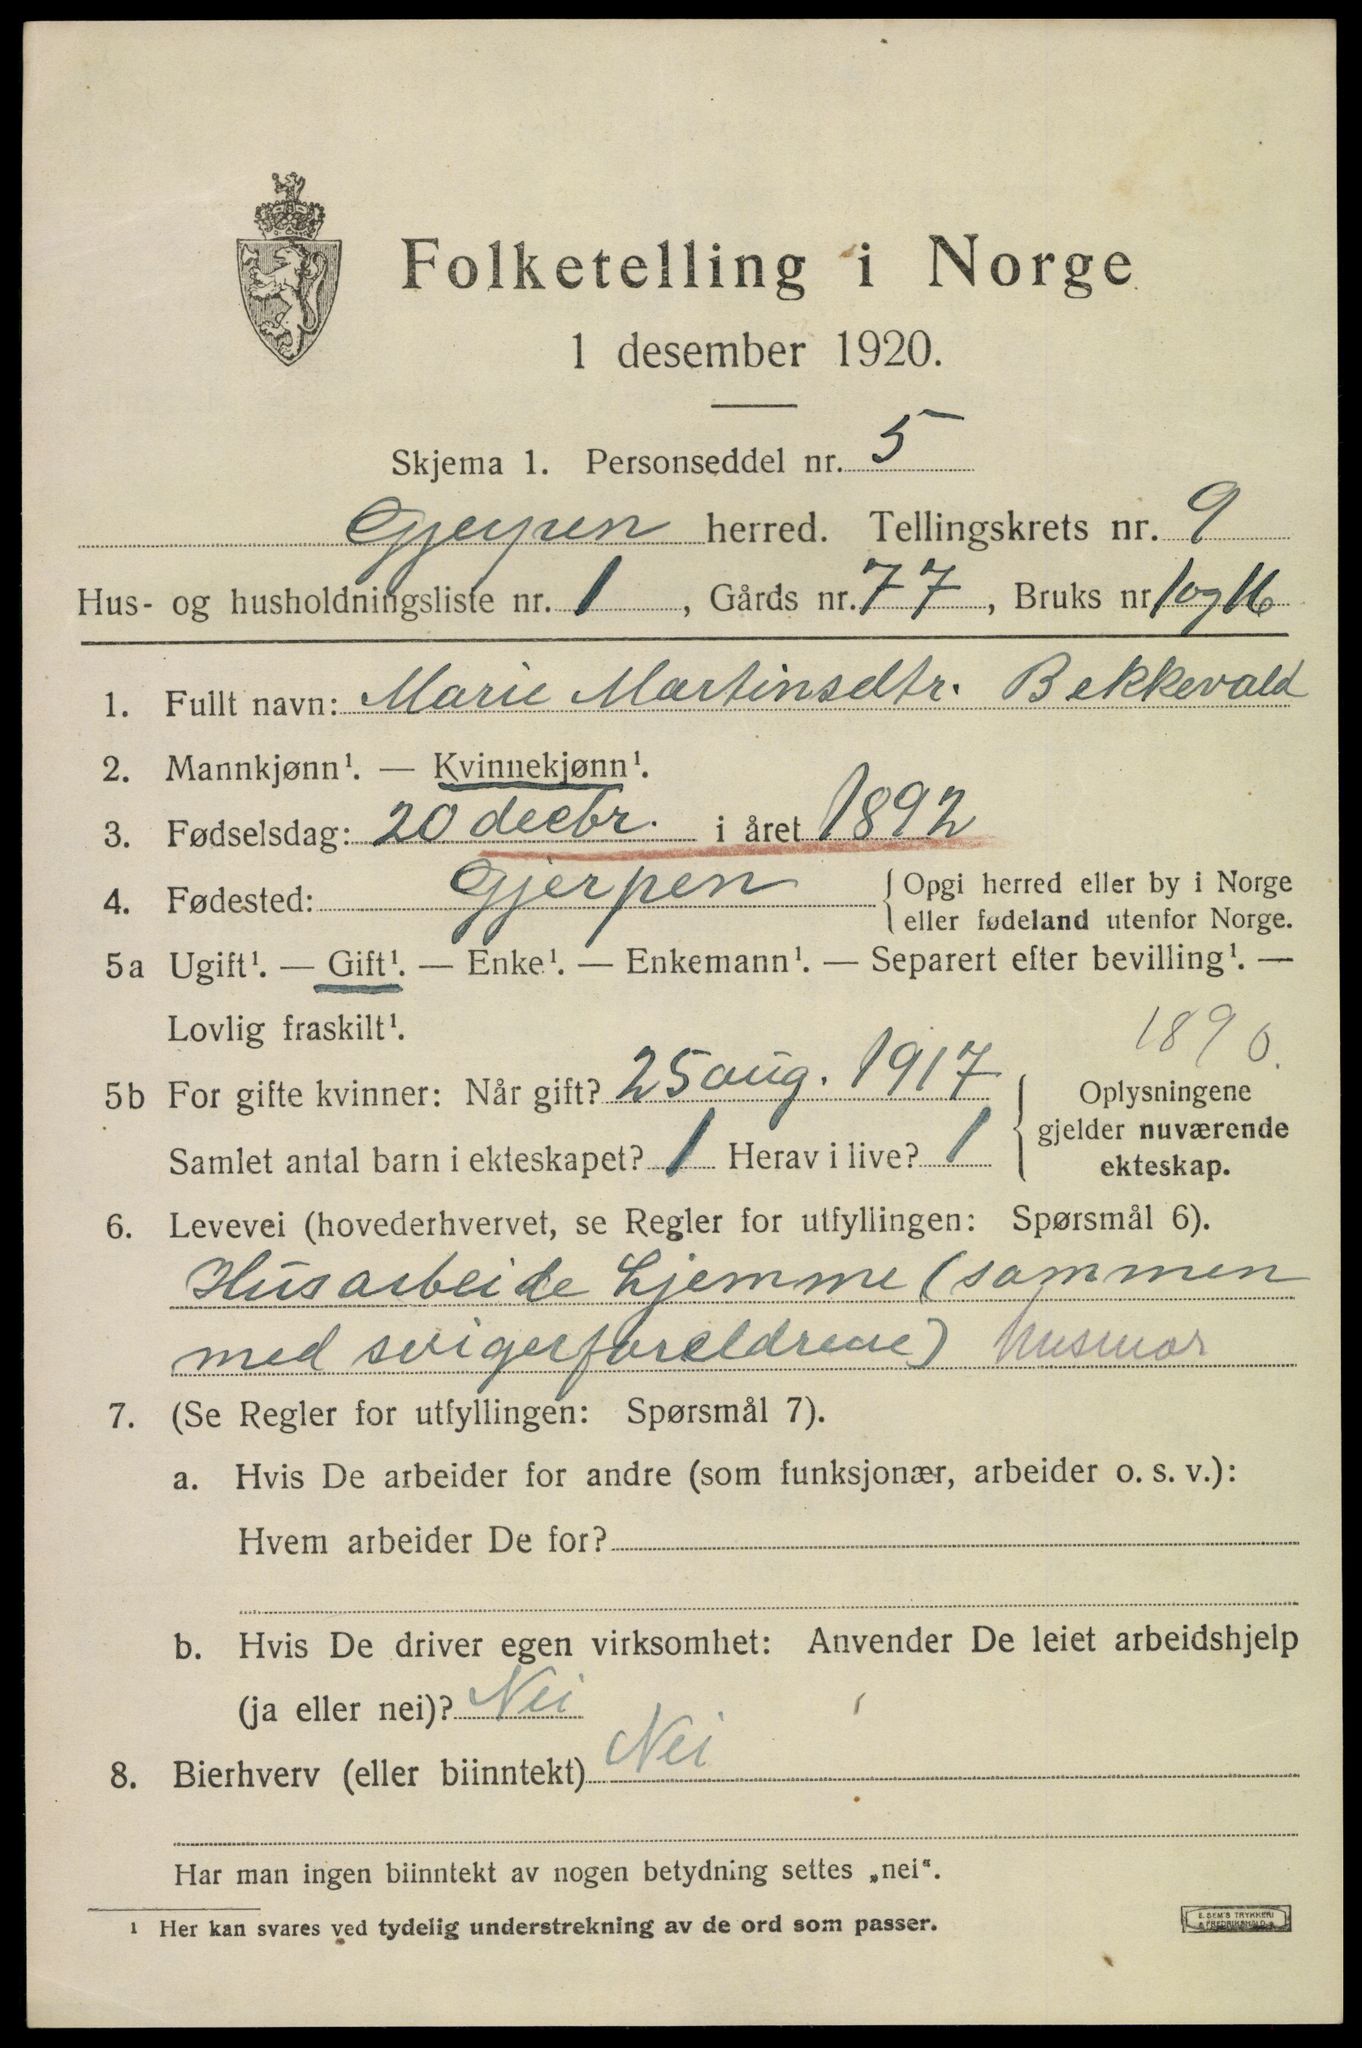 Folketelling i Norge
1 desember 1920.
Skjema 1. Personseddel nr. 5
Gjerpen herred. Tellingskrets nr. 9
Hus- og husholdningsliste nr. 1, Gårds nr. 77, Bruks nr 1 og 16
1. Fullt navn: Marie Martinsdtr. Bekkevald
2. Mannkjønn¹. — Kvinnekjønn¹.
3. Fødselsdag: 20 decbr. i året 1892
4. Fødested: Gjerpen { Opgi herred eller by i Norge
eller fødeland utenfor Norge.
5a Ugift¹. — Gift¹. — Enke¹. — Enkemann¹. — Separert efter bevilling¹. —
Lovlig fraskilt¹.
1890.
5b For gifte kvinner: Når gift? 25 aug. 1917
Samlet antal barn i ekteskapet? 1 Herav i live? 1
Oplysningene
gjelder nuværende
ekteskap.
6. Levevei (hovederhvervet, se Regler for utfyllingen: Spørsmål 6).
Husarbeide hjemme (sammen
med svigerforeldrene) husmor
7. (Se Regler for utfyllingen: Spørsmål 7).
a. Hvis De arbeider for andre (som funksjonær, arbeider o. s. v.):
Hvem arbeider De for?
b. Hvis De driver egen virksomhet: Anvender De leiet arbeidshjelp
(ja eller nei)? Nei
8. Bierhverv (eller biinntekt) Nei
Har man ingen biinntekt av nogen betydning settes „nei“.
¹ Her kan svares ved tydelig understrekning av de ord som passer.
E. SEM'S TRYKKERI
FREDRIKSHALD